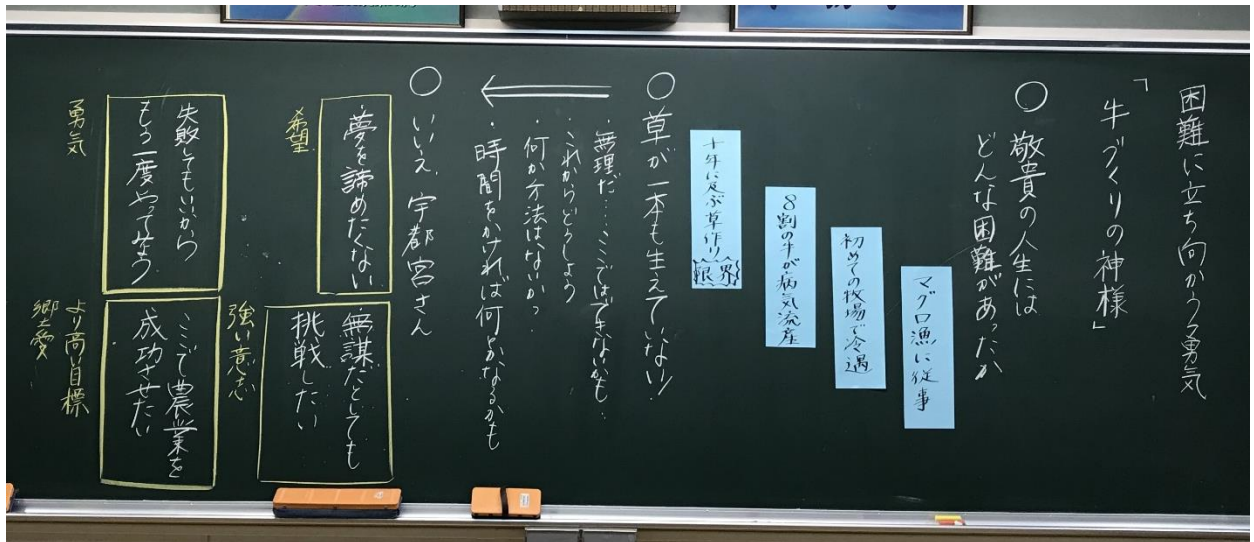 困難に立ち向かう勇気
「牛づくりの神様」
○敬貴の人生には
どんな困難があったか
マグロ漁に従事
初めての牧場で冷遇
8割の牛が病気流産
十年に及ぶ草作り
限界
○草が一本も生えていない!
・無理だ……ここではできないかも…
・これからどうしよう
・何か方法はないかっ
・時間をかければ何とかなるかも
○いいえ、宇都宮さん
夢を諦めたくない
希望
無謀だとしても
挑戦したい
強い意志
失敗してもいいから
もう一度やってみよう
勇気
ここで農業を
成功させたい
より高い目標
郷土愛